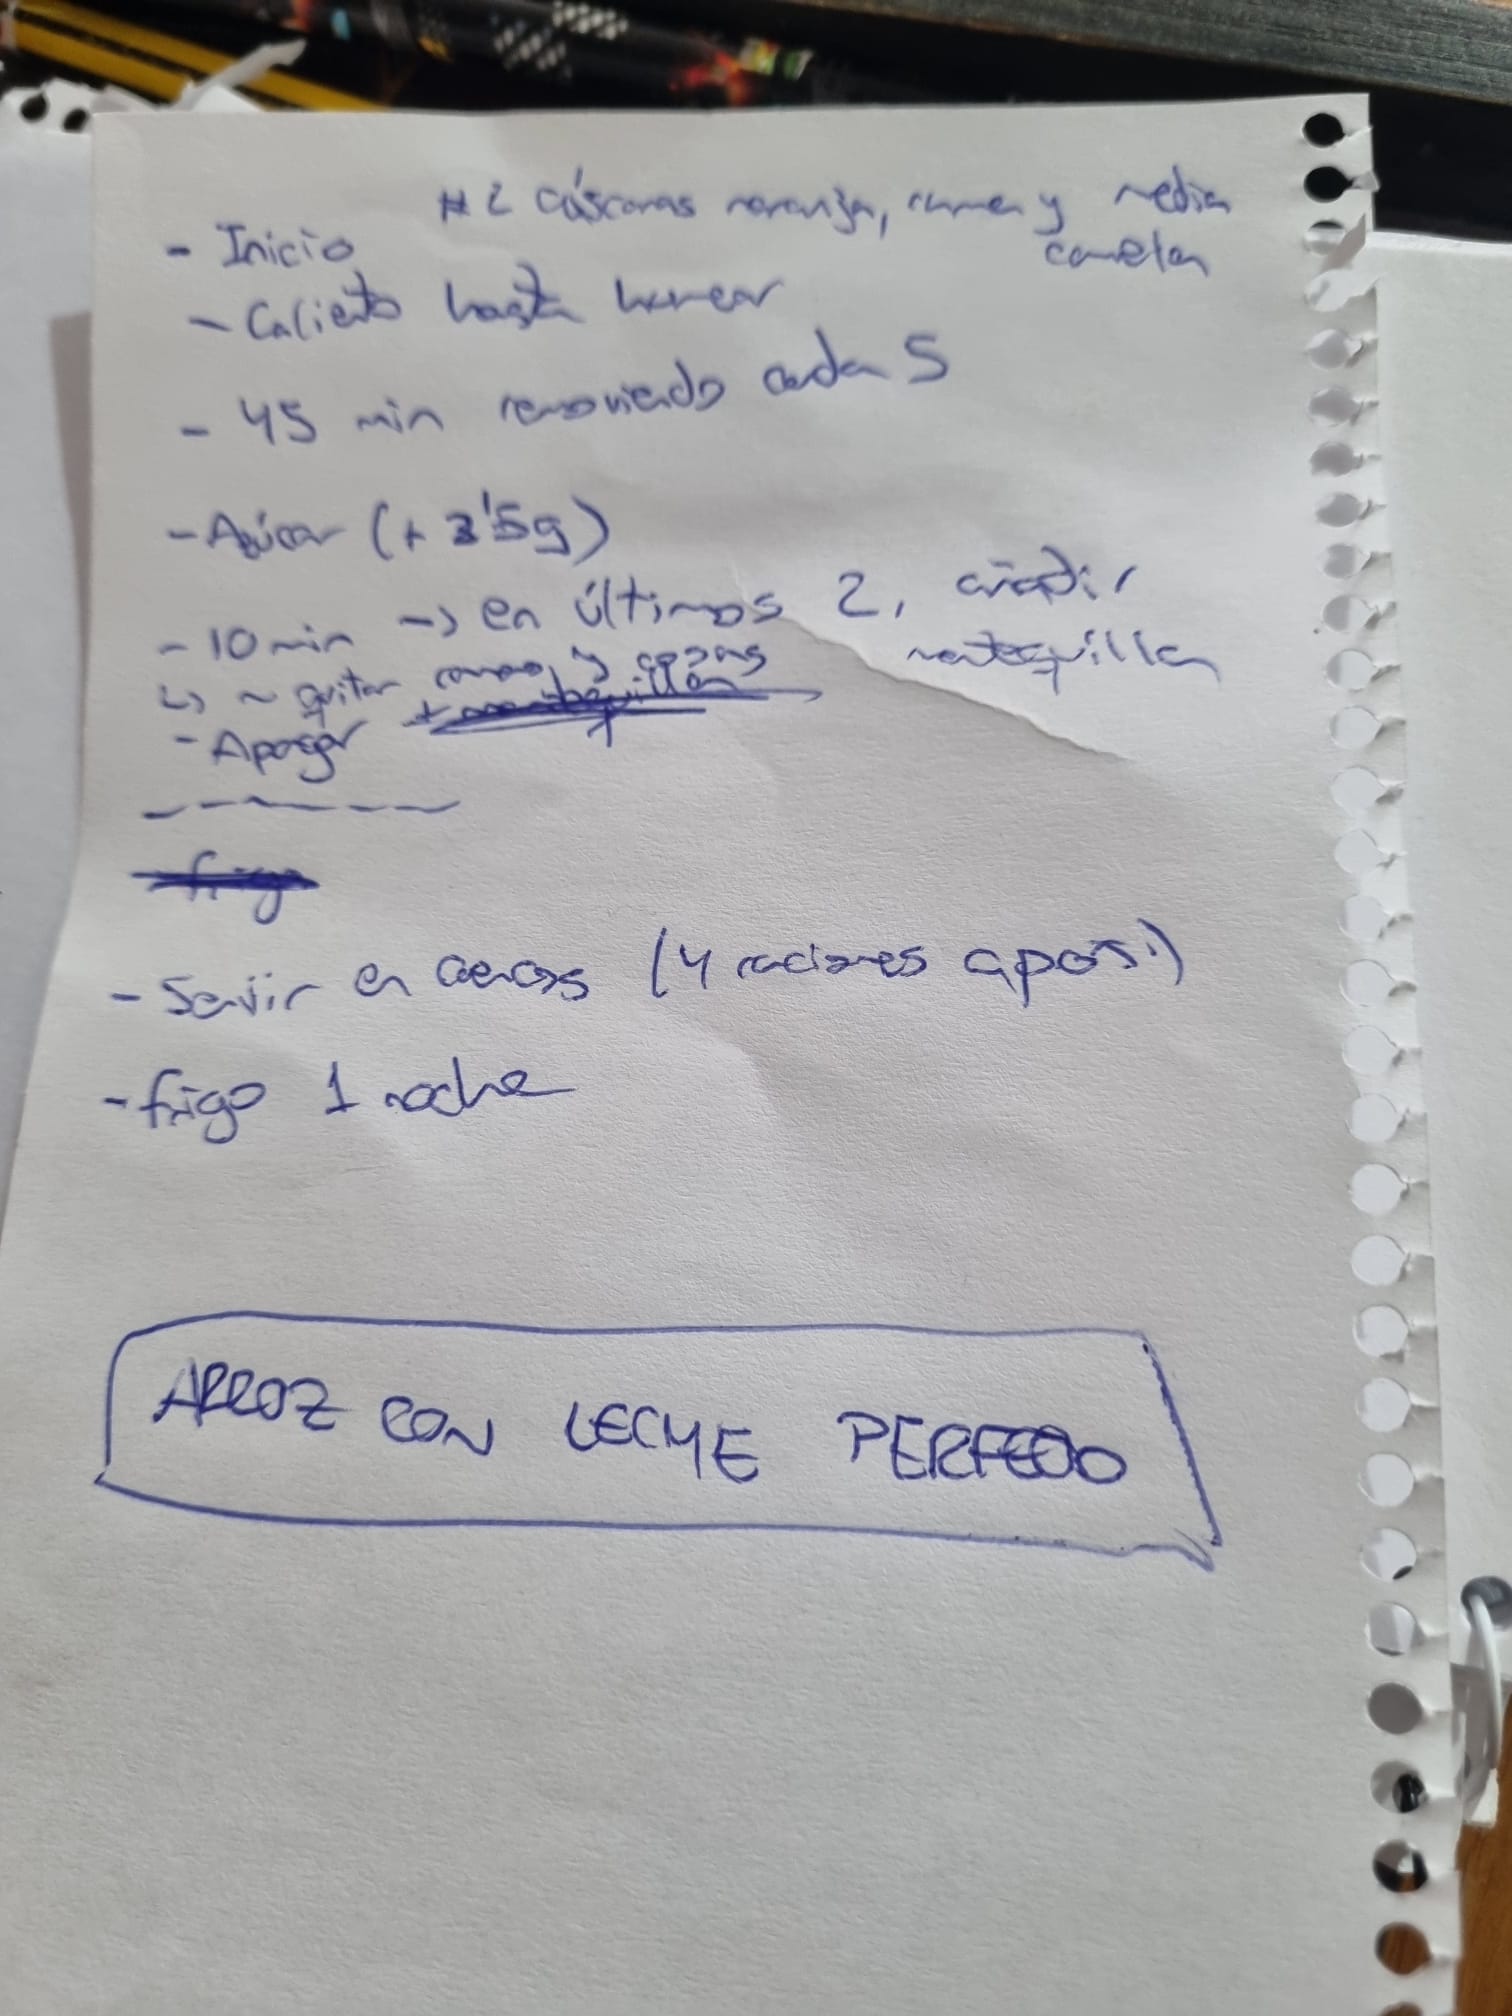 # 2 cáscaras naranja, rama y media
canela
- Inicio
- Caliento hasta humear
- 45 min removiendo cada 5
- Azúcar (+ 3'5g)
- 10 min -> en últimos 2, añadir
mantequilla
↳ ~ quitar rama y cosas
- Apagar + mantequilla
frigo
- Servir en cuencos (4 raciones aprox.)
- frigo 1 noche
ARROZ CON LECHE PERFECTO